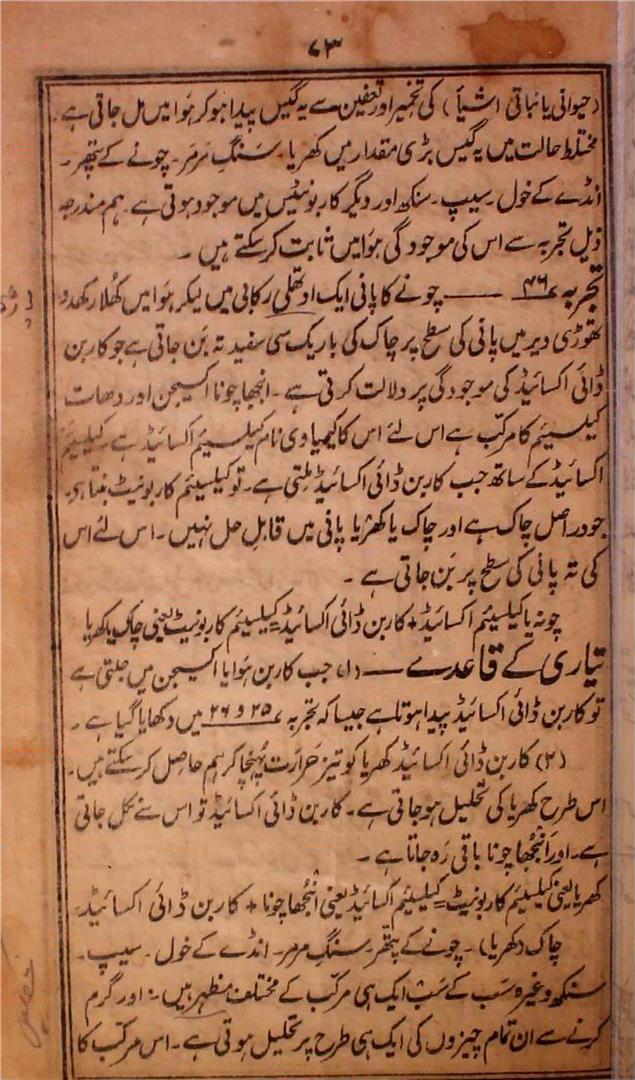 ۷۳
(حیوانی یا نباتی اشیأ) کی تخمیر اور تعفین سے یہ گیس پیدا ہو کر ہَوا میں مل جاتی ہے۔
مختلط حالت میں یہ گیس بڑی مقدار میں کھریا۔ سنگِ مرمر۔ چونے کے پتھر۔
انڈے کے خول۔ سیپ۔ سنکھ اور دیگر کاربونیٹس میں موجود ہوتی ہے۔ ہم مندرجہ
ذیل تجربہ سے اس کی موجودگی ہَوا میں ثابت کر سکتے ہیں۔
تجربہ ۴۶ — چونے کا پانی ایک اوتھلی رکابی میں لیکر ہَوا میں کھُلا رکھدو
تھوڑی دیر میں پانی کی سطح پر چاک کی باریک سی سفید تہ بَن جاتی ہے جو کاربن
ڈائی اکسائیڈ کی موجودگی پر دلالت کرتی ہے۔ انبجھا چونا اکسیجن اور دھات
کیلسیئم کا مرکّب ہے اس لئے اس کا کیمیاوی نام کیلسیئم اکسائیڈ ہے۔ کیلسیئم
اکسائیڈ کے ساتھ جب کاربن ڈائی اکسائیڈ مِلتی ہے۔ تو کیلسیئم کاربونیٹ بنتا ہے۔
جو دراصل چاک ہے اور چاک یا کھڑیا پانی میں قابلِ حل نہیں۔ اس لئے اس
کی تہ پانی کی سطح پر بَن جاتی ہے۔
چونہ یا کیلسیئم اکسائیڈ + کاربن ڈائی اکسائیڈ = کیلسیئم کاربونیٹ یعنی چاک یا کھریا
تیاری کے قاعدے — (۱) جب کاربن ہَوا یا اکسیجن میں جلتی ہے
تو کاربن ڈائی اکسائیڈ پیدا ہوتا ہے جیسا کہ تجربہ ۲۵ و ۲۶ میں دکھایا گیا ہے۔
(۲) کاربن ڈائی اکسائیڈ کھریا کو تیز حَرارت پہُنچا کر ہم حاصل کر سکتے ہیں۔
اس طرح کھریا کی تحلیل ہو جاتی ہے۔ کاربن ڈائی اکسائیڈ تو اس سے نکل جاتی
ہے۔ اور انبُجھا چونا باقی رَہ جاتا ہے۔
کھریا یعنی کیلسیئم کاربونیٹ = کیلسیئم اکسائیڈ یعنی انبُجھا چونا + کاربن ڈائی اکسائیڈ۔
چاک (کھریا)۔ چونے کے پتھر۔ سنگِ مرمر۔ انڈے کے خول۔ سیپ۔
سنکھ وغیرہ سَب کے سَب ایک ہی مرکّب کے مختلف مظہر ہیں۔ اور گرم
کرنے سے ان تمام چیزوں کی ایک ہی طرح پر تحلیل ہوتی ہے۔ اس مرکّب کا